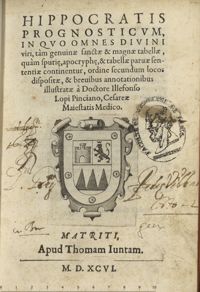 HIPPOCRATIS
PROGNOSTICVM,
IN QVO OMNES DIVINI
viri, tàm genuinæ sanctæ & magnæ tabellæ,
quàm spuriæ, apocryphę, & tabellæ paruæ sen-
tentiæ continentur, ordine secundum locos
dispositæ, & breuibus annotationibus
illustratæ à Doctore Illefonso
Lopi Pinciano, Cesareæ
Maiestatis Medico.
MATRITI,
Apud Thomam Iuntam.
M. D. XCVI.